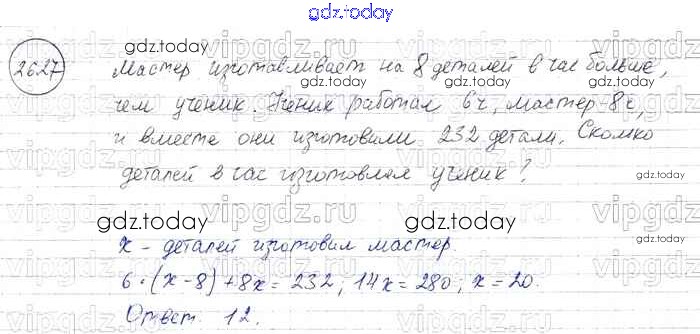 gdz.today
2627
Мастер изготавливает на 8 деталей в час больше,
чем ученик. Ученик работал 6 ч, мастер - 8 ч,
и вместе они изготовили 232 детали. Сколко
деталей в час изготовлял ученик?
x - деталей изготовил мастер.
6·(x-8)+8x=232; 14x=280; x=20.
Ответ 12.
gdz.today
gdz.today
gdz.today
gdz.today
gdz.today
gdz.today
gdz.today
gdz.today
vipgdz.ru
vipgdz.ru
vipgdz.ru